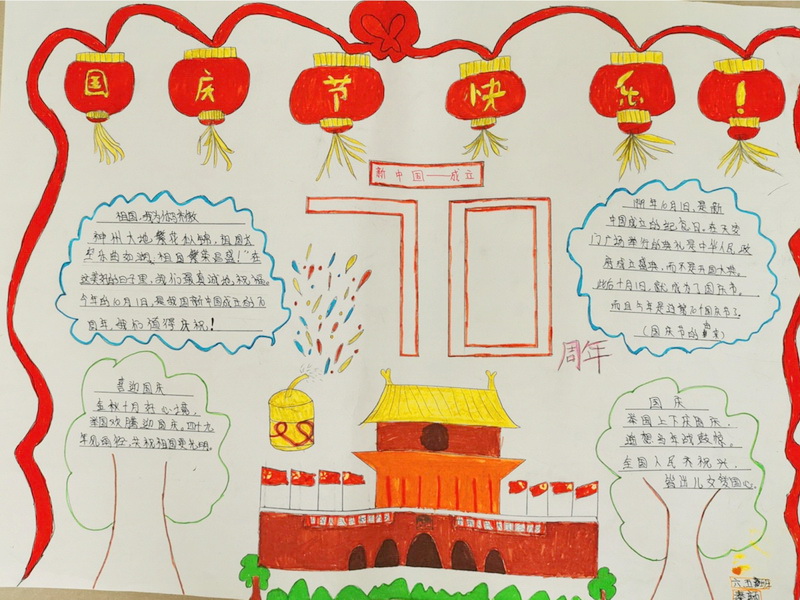 国庆节快乐!
新中国——成立
70
周年
祖国,我为你骄傲
神州大地繁花似锦,祖国长
空乐曲如潮。祖国繁荣昌盛!"在
这美好的日子里,我们要真诚地祝福。
今年的10月1日,是我国新中国成立的70
周年,我们值得庆祝!
10月1日,是新
中国成立的纪念日。在天安
门广场举行的典礼是中华人民政
府成立盛典,而不是开国大典。
此后十月1日,就成为了国庆节。
而且今年是过第70个国庆节了。
(国庆节的由来)
喜迎国庆
金秋十月好心情,
举国欢腾迎国庆。四十九
年风雨征,庆祝祖国更光明。
国庆
举国上下庆国庆,
遥想当年战鼓振。
全国人民齐祝兴,
皆道儿女梦圆心。